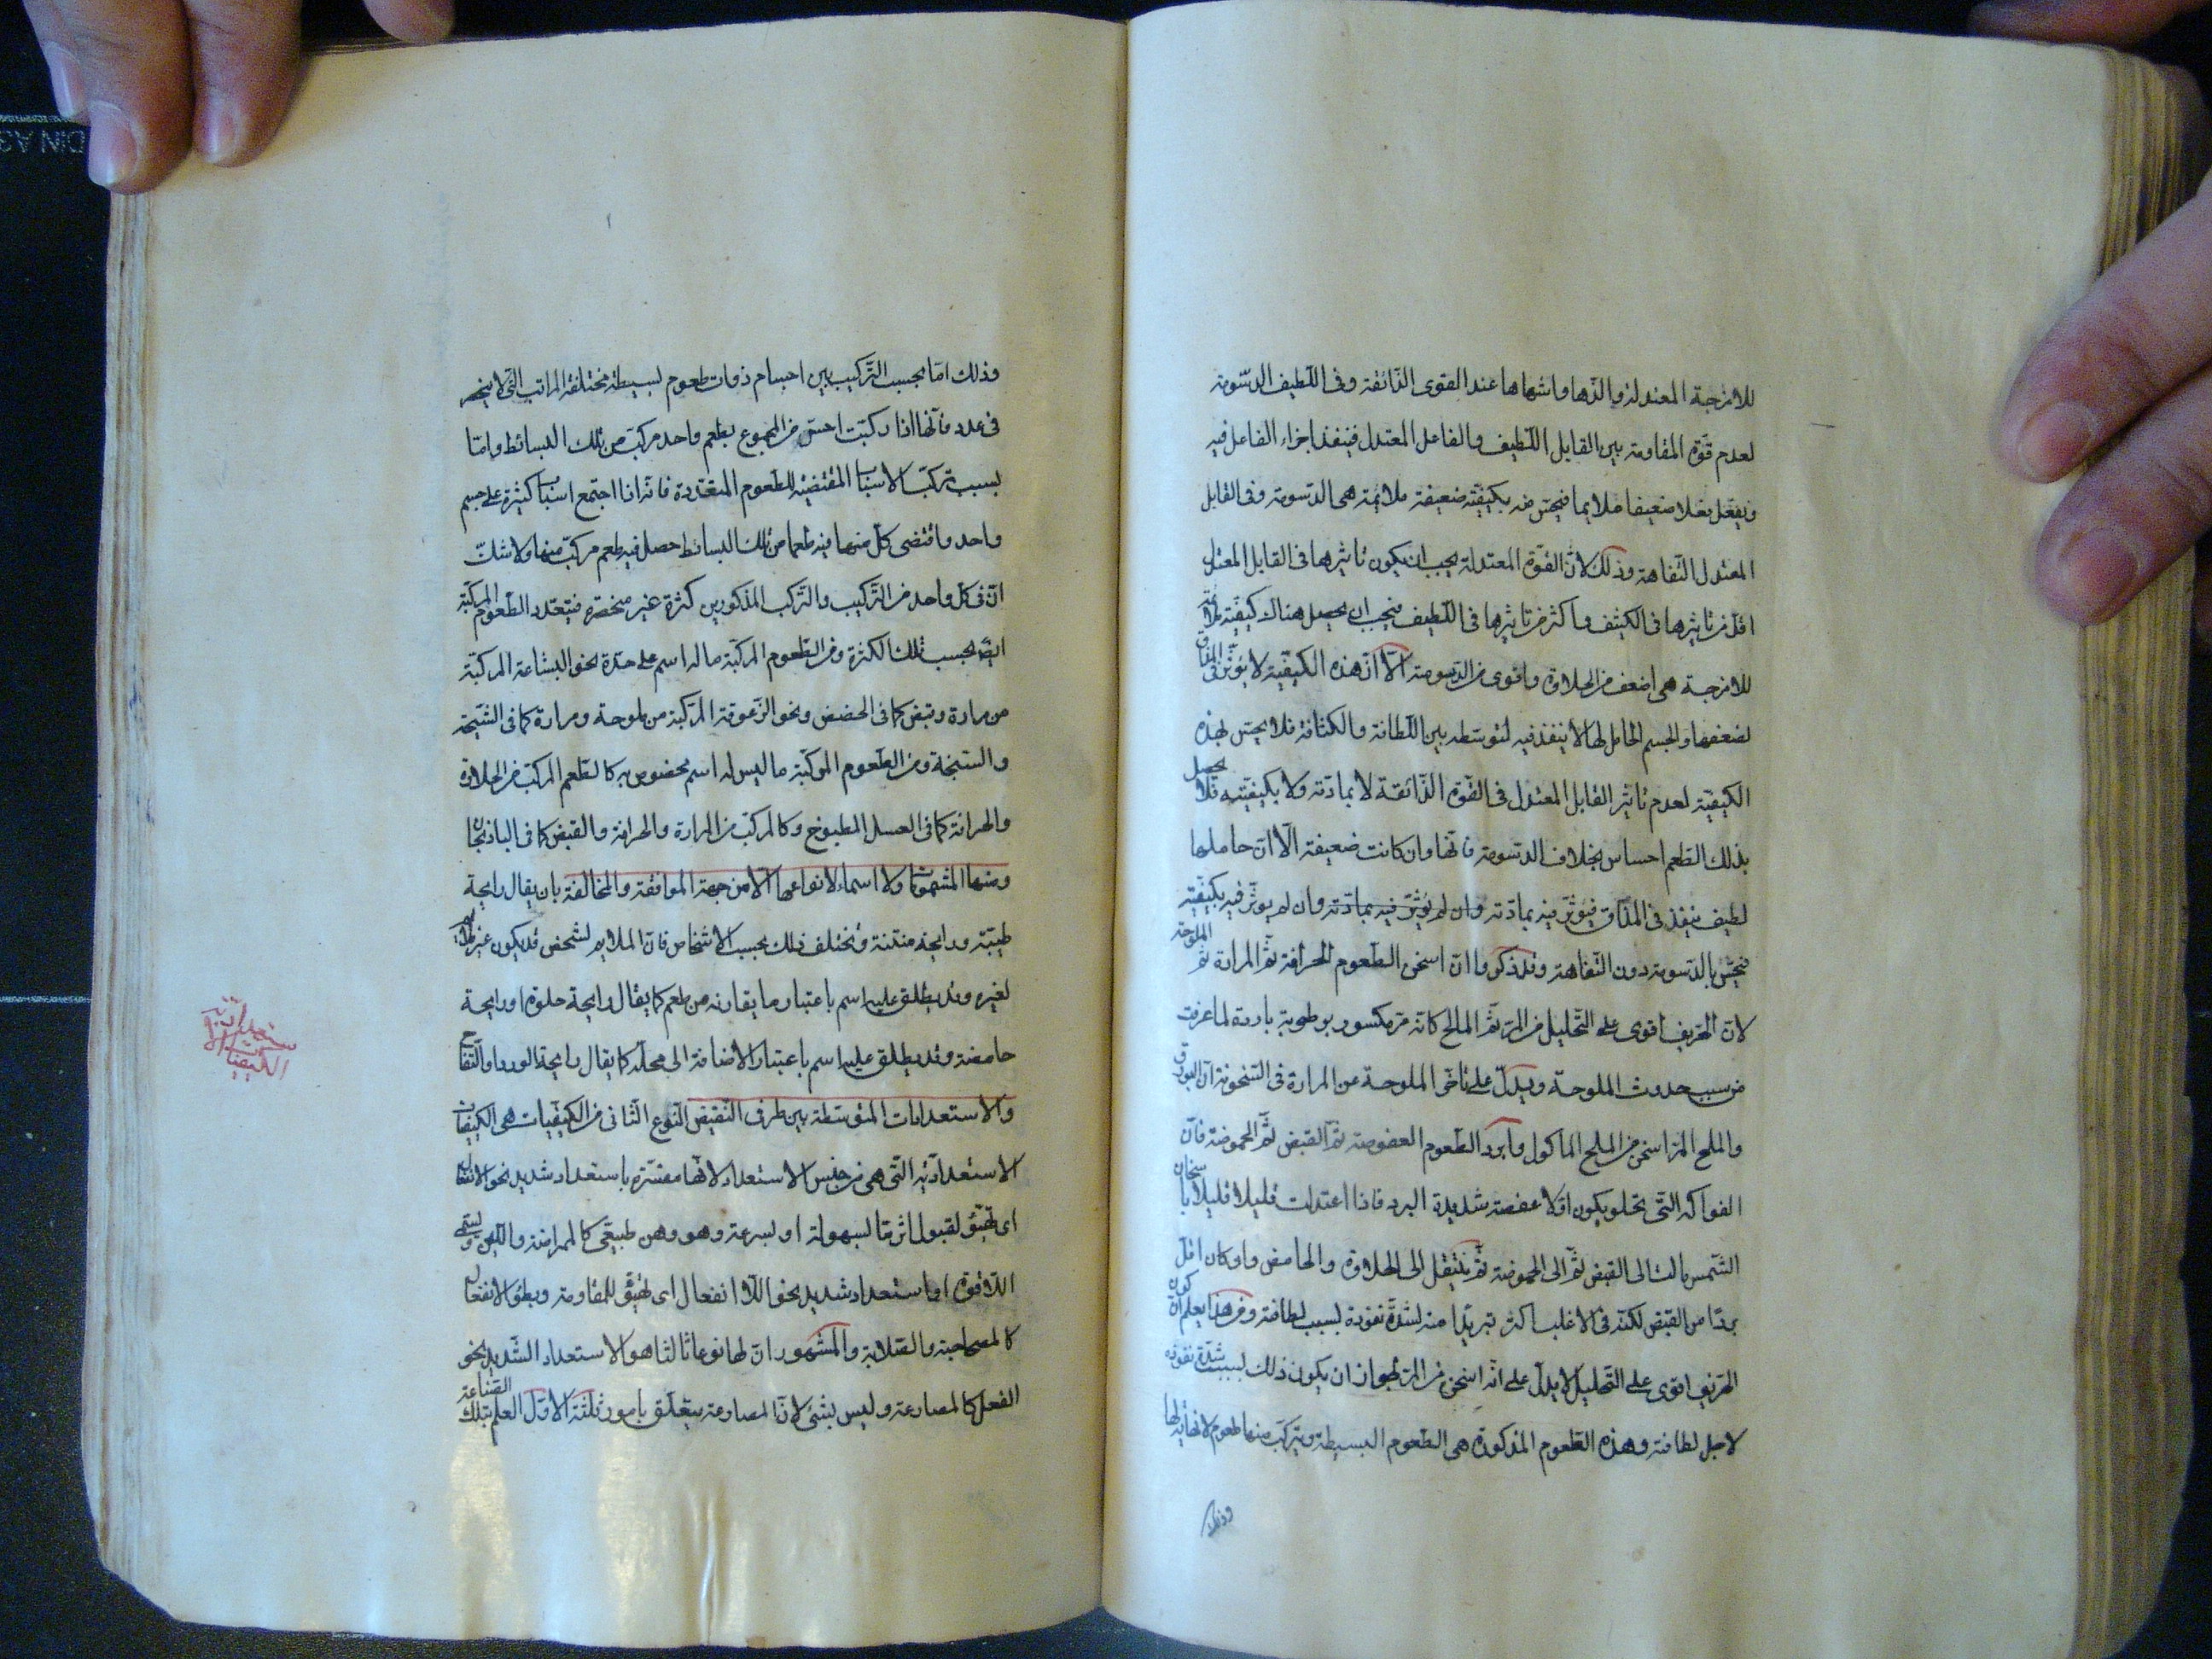 للامزجة المعتدلة والذها واشهاها عند القوى الذائقة وفى اللطيف الدسومة
لعدم قوة المقاومة بين القابل اللطيف والفاعل المعتدل فينفذ اجزاء الفاعل فيه
ويفعل فعلا ضعيفا ملايما فيحس منه بكيفية ضعيفة ملائمة هى الدسومة وفى القابل
المعتدل التفاهة وذلك لان القوة المعتدلة يجب ان يكون تاثيرها فى القابل المعتدل
اقل من تاثيرها فى الكثيف واكثر من تاثيرها فى اللطيف فيجب ان يحصل هناك كيفية ملائمة
للامزجة هى اضعف من الحلاوة واقوى من الدسومة الا ان هذه الكيفية لا يؤثر فى المذاق
لضعفها والجسم الحامل لها لا ينفذ فيه لتوسطه بين اللطافة والكثافة فلا يحس بهذه
الكيفية لعدم تاثير القابل المعتدل فى القوة الذائقة لا بمادته ولا بكيفيته فلا يحصل
بذلك الطعم احساس بخلاف الدسومة فانها وان كانت ضعيفة الا ان حاملها
لطيف ينفذ فى المذاق فيؤثر فيه بمادته وان لم يؤثر فيه بمادته وان لم يؤثر فيه بكيفيته
فيحس بالدسومة دون التفاهة وقد ذكروا ان اسخن الطعوم الحرافة ثم المرارة ثم الملوحة
لان الحريف اقوى على التحليل من المر ثم المالح كانه مر مكسور برطوبة باردة لما عرفت
من سبب حدوث الملوحة ويدل على تاخر الملوحة عن المرارة فى السخونة ان البورق
والملح المر اسخن من الملح الماكول وابرد الطعوم العفوصة ثم القبض ثم الحموضة فان
الفواكه التى تحلو يكون اولا عفصة شديدة البرد فاذا اعتدلت قليلا قليلا باسخان
الشمس مالت الى القبض ثم الى الحموضة ثم ينتقل الى الحلاوة والحامض وان كان اقل
بردا من القبض لكنه فى الاغلب اكثر تبريدا منه لشدة نفوذه لسبب لطافته ومن هذا يعلم ان كون
الحريف اقوى على التحليل لا يدل على انه اسخن من المر لجواز ان يكون ذلك لسبب شدة نفوذه
لاجل لطافته وهذه الطعوم المذكورة هى الطعوم البسيطة ويتركب منها طعوم لا نهاية لها
وذلك
وذلك اما بحسب التركيب بين اجسام ذوات طعوم بسيطة مختلفة المراتب التى لا ينحصر
فى عدد فانها اذا ركبت احس من المجموع بطعم واحد مركب من تلك البسائط واما
بسبب تركب الاسباب المقتضية للطعوم المتعددة فانه اذا اجتمع اسباب كثيرة على جسم
واحد واقتضى كل منها فيه طعما من تلك البسائط حصل فيه طعم مركب منها ولا شك
ان فى كل واحد من التركيب والتركب المذكورين كثرة غير منحصرة فيتعدد الطعوم المركبة
ايضا بحسب تلك الكثرة ومن الطعوم المركبة ما له اسم على حدة نحو البشاعة المركبة
من مرارة وقبض كما فى الحضض ونحو الزعوقة المركبة من ملوحة ومرارة كما فى الشيحة
والسبخة ومن الطعوم المركبة ما ليس له اسم مخصوص به كالطعم المركب من الحلاوة
والحرافة كما فى العسل المطبوخ وكالمركب من المرارة والحرافة والقبض كما فى الباذنجان
ومنها المشمومات ولا اسماء لانواعها الا من جهة الموافقة والمخالفة بان يقال رايحة
طيبة ورايحة منتنة وتختلف ذلك بحسب الاشخاص فان الملايم لشخص قد يكون غير ملايم
لغيره وقد يطلق عليه اسم باعتبار ما يقارنه من طعم كما يقال رايحة حلوة او رايحة
حامضة وقد يطلق عليه اسم باعتبار الاضافة الى محله كما يقال رايحة الورد والتفاح
والاستعدادات المتوسطة بين طرفى النقيض النوع الثانى من الكيفيات هى الكيفيات
الاستعدادية التى هى من جنس الاستعداد لانها مفسرة باستعداد شديد نحو الانفعال
اى تهيؤ لقبول اثر ما لسهولة او لسرعة وهو وهن طبيعى كالممراضة واللين ويسمى
اللاقوة او استعداد شديد نحو اللا انفعال اى تهيؤ للمقاومة وبطؤ الانفعال
كالمصحاحية والصلابة والمشهور ان لها نوعا ثالثا هو الاستعداد الشديد نحو
الفعل كالمصارعة وليس بشئ لان المصارعة يتعلق بامور ثلثة الاول العلم بتلك الصناعة